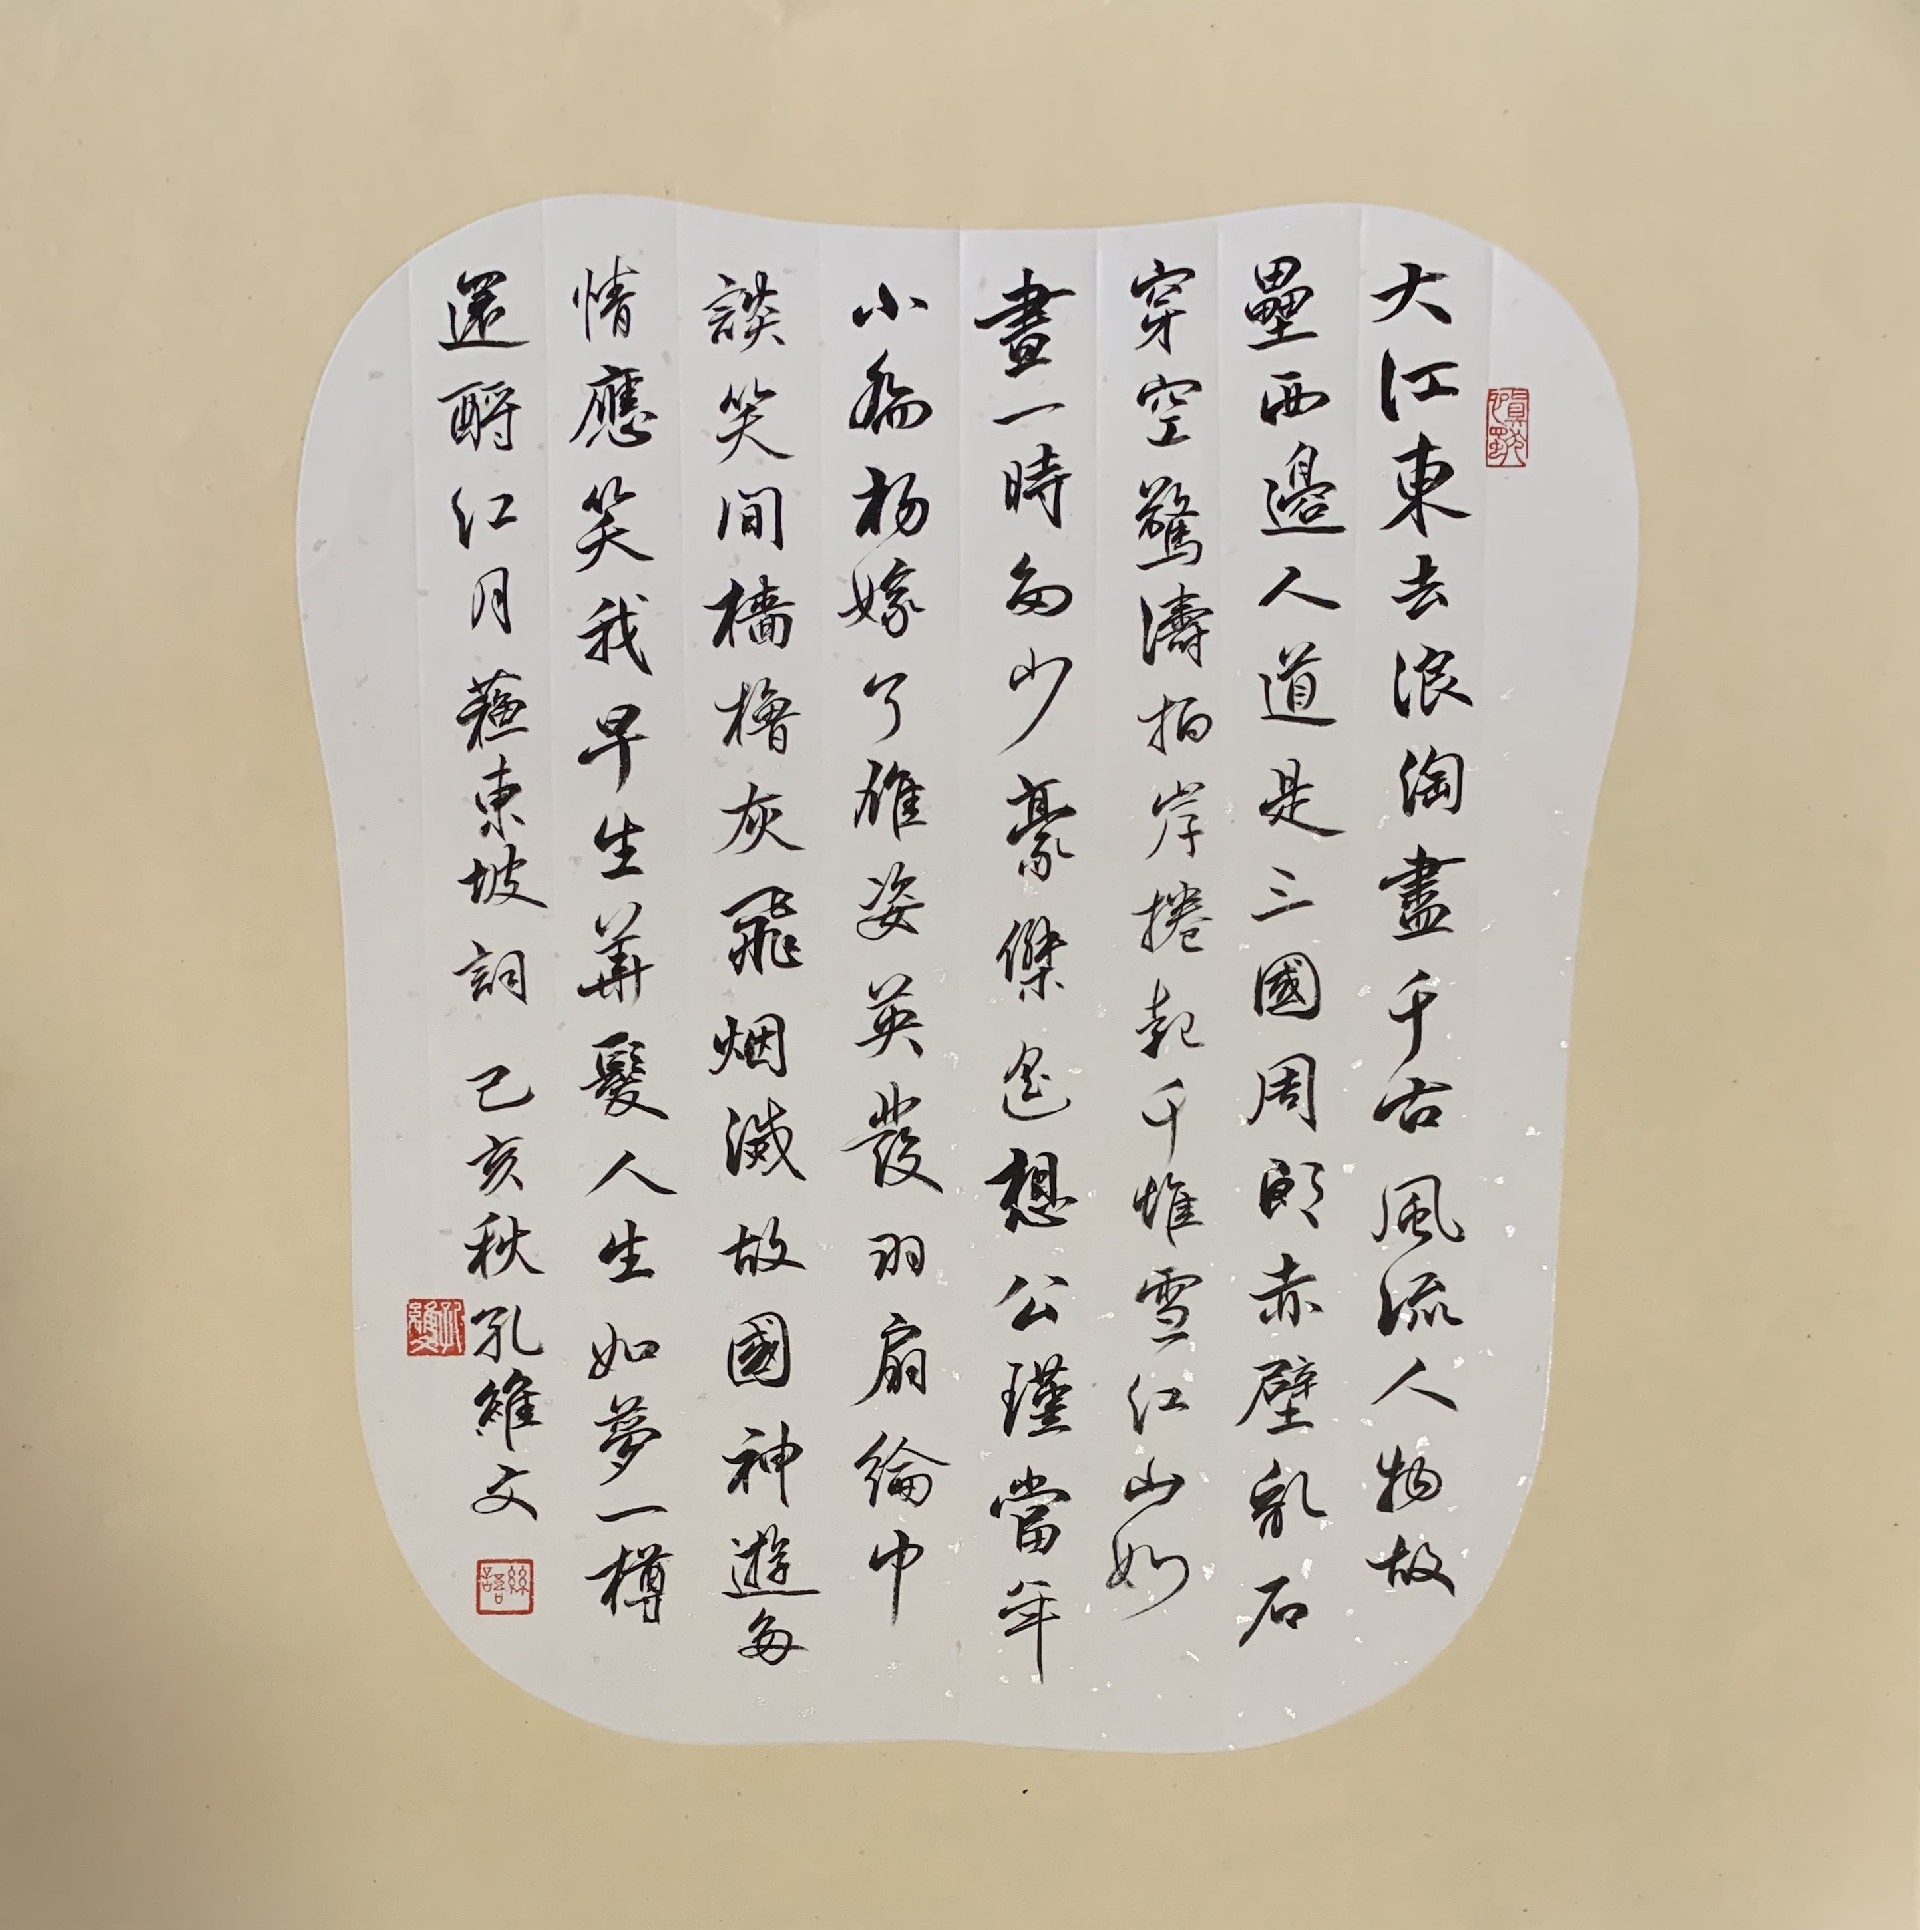 大江東去浪淘盡千古風流人物故
壘西邊人道是三國周郎赤壁亂石
穿空驚濤拍岸捲起千堆雪江山如
畫一時多少豪傑遙想公瑾當年
小喬初嫁了雄姿英發羽扇綸巾
談笑間檣櫓灰飛烟滅故國神遊多
情應笑我早生華髮人生如夢一樽
還酹江月蘇東坡詞 己亥秋孔維文
孔維文